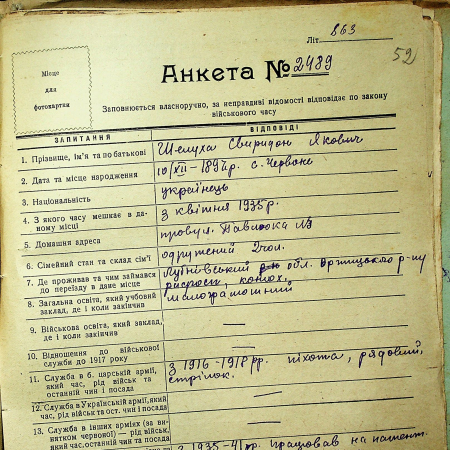 Літ. 863
52
Місце
для
фотокартки
Анкета № 2489
Заповнюється власноручно, за неправдиві відомості відповідає по закону
військового часу
ЗАПИТАННЯ ВІДПОВІДІ
1. Прізвище, ім'я та по батькові Шелуха Свиридон Якович
2. Дата та місце народження 10/XII - 1897р. с. Червоне
3. Національність українець
4. З якого часу мешкає в да-
ному місці З квітня 1935р.
5. Домашня адреса провул. №3
6. Сімейний стан та склад сім'ї одружений 2 чол.
7. Де проживав та чим займався
до переїзду в дане місце обл. р-ну
конюх,
8. Загальна освіта, який учбовий
заклад, де і коли закінчив малограмотний
9. Військова освіта, який заклад,
де і коли закінчив —
10. Відношення до військової
служби до 1917 року —
11. Служба в б. царській армії,
який час, рід військ та
останній чин і посада З 1916-1918 рр. піхота, рядовий,
стрілок.
12. Служба в Українській армії, який
час, рід військ та ост. чин і посада —
13. Служба в інших арміях (за ви-
нятком червоної) — рід військ,
який час, останній чин та посада —
З 1935-41 рр. працював на